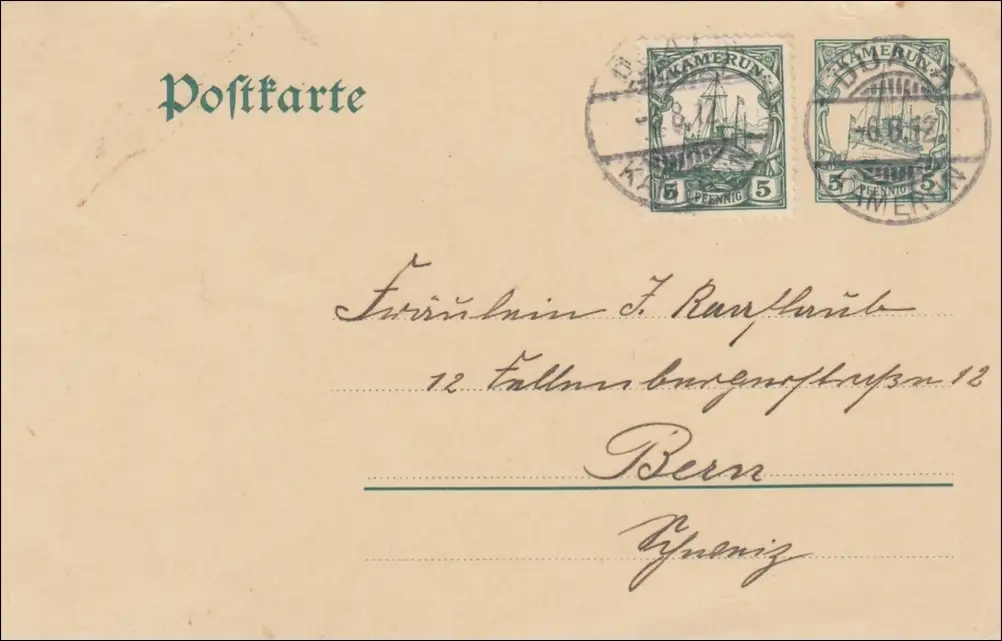 Postkarte
KAMERUN
5 5
PFENNIG
KAMERUN
5 5
PFENNIG
DUALA
8.12.
KAMERUN
DUALA
-6.8.12.
KAMERUN
Fräulein J. Raaflaub
12 Fellenbergerstraße 12
Bern
Schweiz